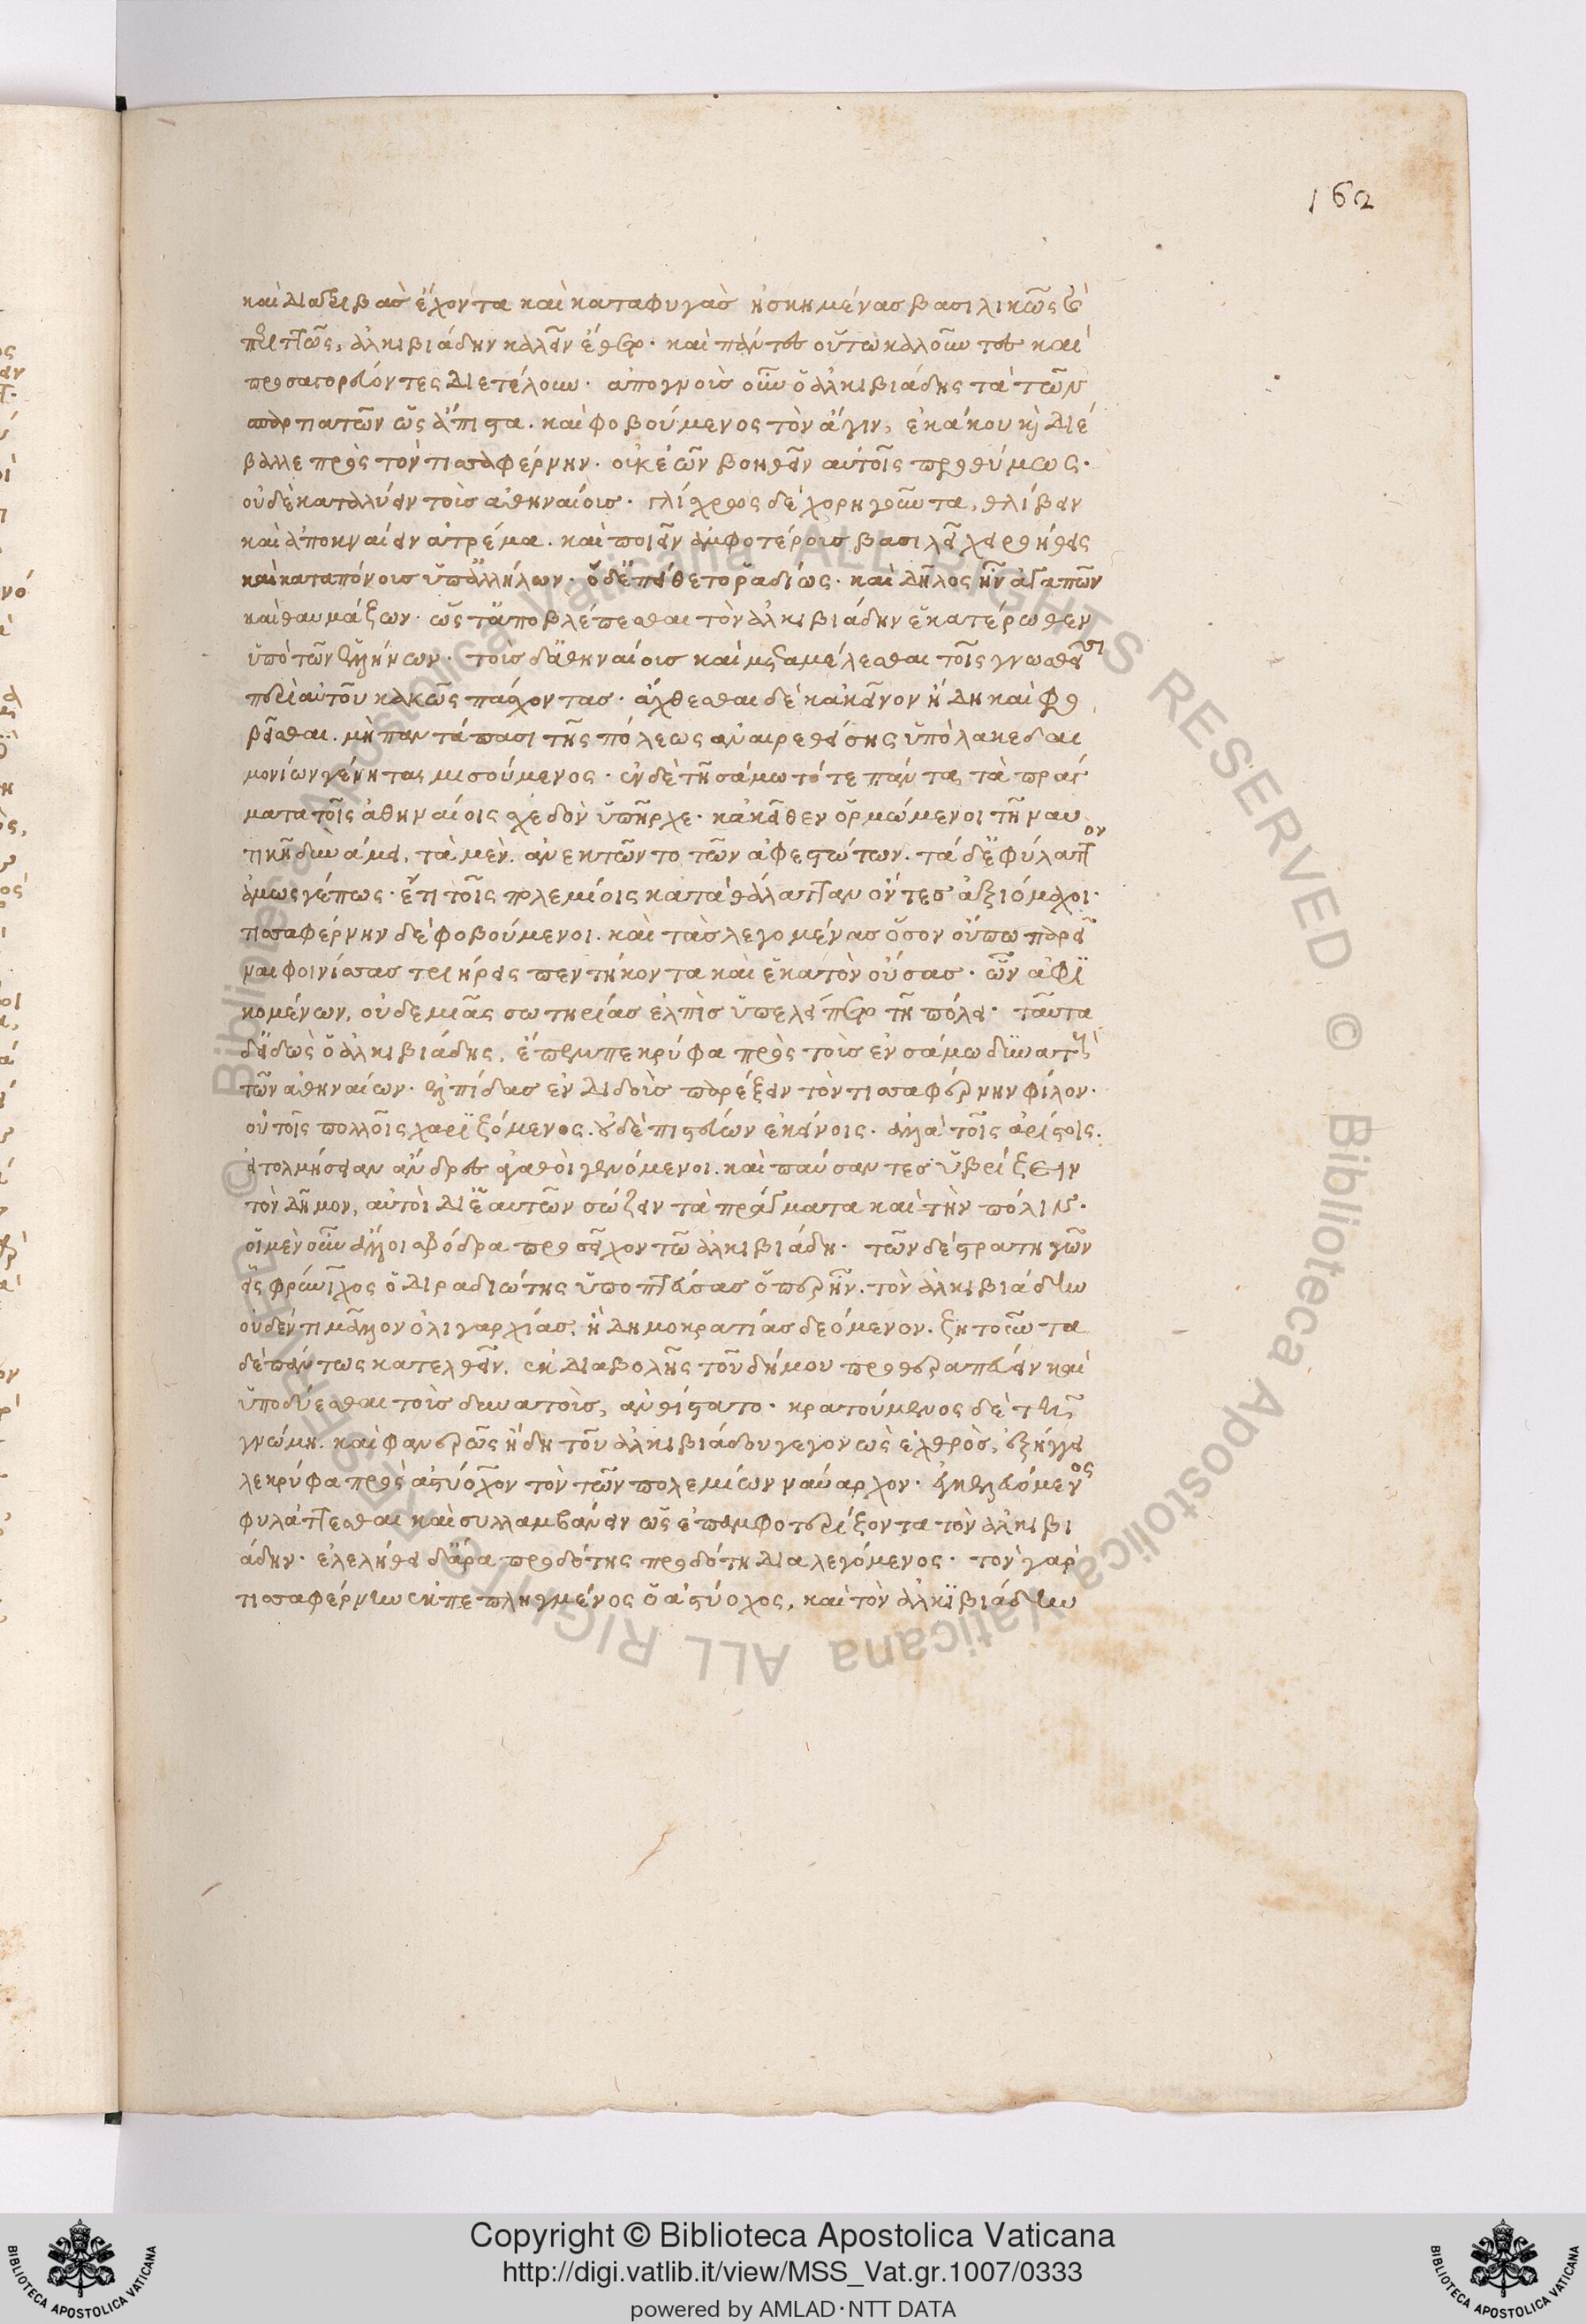 162
καὶ διατριβὰσ ἔχοντα καὶ καταφυγὰσ ἠσκημένασ βασιλικῶς καὶ
περιττῶς, ἀλκιβιάδην καλεῖν ἔθετο. καὶ πάντες οὕτω καλοῦντες καὶ
προσαγορεύοντες διετέλουν. ἀπογνοὺσ οὖν ὁ ἀλκιβιάδης τὰ τῶν
σπαρτιατῶν ὡς ἄπιστα. καὶ φοβούμενος τὸν ἄγιν, ἐκάκου κὶ διέ
βαλλε πρὸς τὸν τισσαφέρνην. οὐκ ἐῶν βοηθεῖν αὐτοῖς προθύμως.
οὐδὲ καταλύειν τοὺσ ἀθηναίουσ. γλίσχρως δὲ χορηγοῦντα, θλίβειν
καὶ ἀποκναίειν ἀτρέμα. καὶ ποιεῖν ἀμφοτέρουσ βασιλεῖ χειροήθεις
καὶ καταπόνουσ ὑπ ἀλλήλων. ὁ δ ἐπείθετο ῥαδίως. καὶ δῆλος ἦν ἀγαπῶν
καὶ θαυμάζων. ὥς τ ἀποβλέπεσθαι τὸν ἀλκιβιάδην ἑκατέρωθεν
ὑπὸ τῶν ἑλλήνων. τοὺσ δ ἀθηναίουσ καὶ μεταμέλεσθαι τοῖς γνωσθεῖσι
περὶ αὐτοῦ κακῶς πάσχοντασ. ἄχθεσθαι δὲ κἀκεῖνον ἤδη καὶ φο
βεῖσθαι. μὴ παντάπασι τῆς πόλεως ἀναιρεθείσης ὑπὸ λακεδαι
μονίων γένηται μισούμενος. ἐν δὲ τῆ σάμω τότε πάντα τὰ πράγ
ματα τοῖς ἀθηναίοις σχεδὸν ὑπῆρχε. κἀκεῖθεν ὁρμώμενοι τῆ ναυ
τικῆ δυνάμει, τὰ μὲν. ἀνεκτῶντο τῶν ἀφεστώτων. τὰ δ ἐφύλαττον
ἁμωσγέπως. ἔτι τοῖς πολεμίοις κατὰ θάλατταν ὄντεσ ἀξιόμαχοι.
τισσαφέρνην δὲ φοβούμενοι. καὶ τὰσ λεγομένασ ὅσον οὔπω παρεῖ
ναι φοινίσσασ τριήρεις πεντήκοντα καὶ ἑκατὸν οὔσασ. ὧν ἀφι
κομένων, οὐδεμιᾶς σωτηρίασ ἐλπὶσ ὑπελείπετο τῆ πόλει. ταῦτα
δ εἰδὼς ὁ ἀλκιβιάδης, ἔπεμπε κρύφα πρὸς τοὺσ ἐν σάμω δυνατοὺς
τῶν ἀθηναίων. ἐλπίδασ ἐνδιδοὺσ παρέξειν τὸν τισσαφέρνην φίλον.
οὐ τοῖς πολλοῖς χαριζόμενος. οὐδὲ πιστεύων ἐκείνοις. ἀλλὰ τοῖς ἀρίστοις.
εἰ τολμήσειαν ἄνδρες ἀγαθοὶ γενόμενοι. καὶ παύσαντεσ ὑβρίζειν
τὸν δῆμον, αὐτοὶ δι ἑαυτῶν σώζειν τὰ πράγματα καὶ τὴν πόλιν.
οἱ μὲν οὖν ἄλλοι σφόδρα προσεῖχον τῶ ἀλκιβιάδη. τῶν δὲ στρατηγῶν
εἷς φρύνιχος ὁ διραδιώτης ὑποπτεύσας ὅπερ ἦν. τὸν ἀλκιβιάδην
οὐδέν τι μᾶλλον ὀλιγαρχίασ, ἢ δημοκρατίασ δεόμενον. ζητοῦντα
δὲ πάντως κατελθεῖν, ἐκ διαβολῆς τοῦ δήμου προθεραπεύειν καὶ
ὑποδύεσθαι τοὺσ δυνατοὺσ, ἀνθίστατο. κρατούμενος δὲ τῆ
γνώμη. καὶ φανερῶς ἤδη τοῦ ἀλκιβιάδου γεγονὼς ἐχθρὸσ, ἐξήγγει
λε κρύφα πρὸς ἀστύοχον τὸν τῶν πολεμίων ναύαρχον. ἐγκελευόμενος
φυλάττεσθαι καὶ συλλαμβάνειν ὡς ἐπαμφοτερίζοντα τὸν ἀλκιβι
άδην. ἐλελήθει δ ἄρα προδότης προδότη διαλεγόμενος. τὸν γὰρ
τισσαφέρνην ἐκπεπληγμένος ὁ ἀστύοχος, καὶ τὸν ἀλκιβιάδην
Copyright © Biblioteca Apostolica Vaticana
http://digi.vatlib.it/view/MSS_Vat.gr.1007/0333
powered by AMLAD·NTT DATA